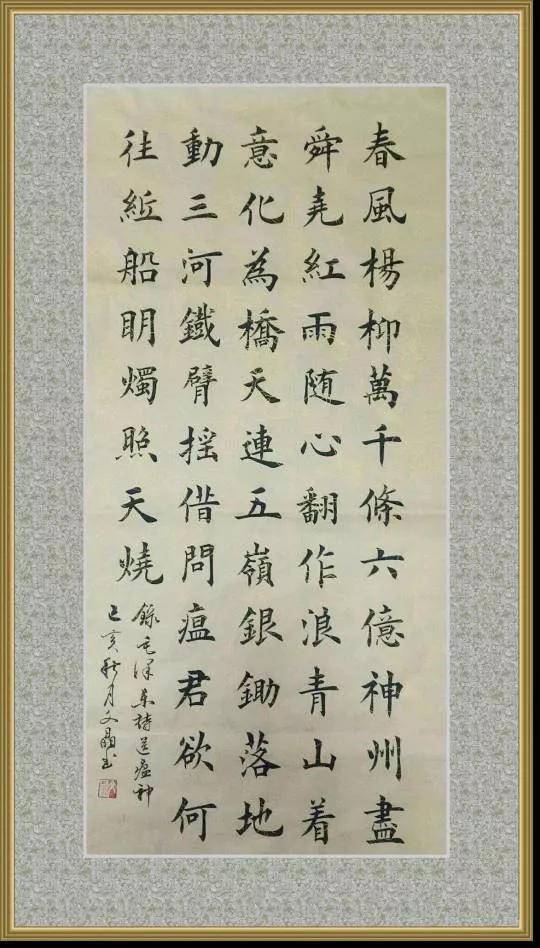 春風楊柳萬千條六億神州盡
舜堯紅雨随心翻作浪青山着
意化為橋天連五嶺銀鋤落地
動三河鐵臂摇借問瘟君欲何
往紙船眀燭照天燒
錄毛澤東詩送瘟神
己亥秋月文晶书